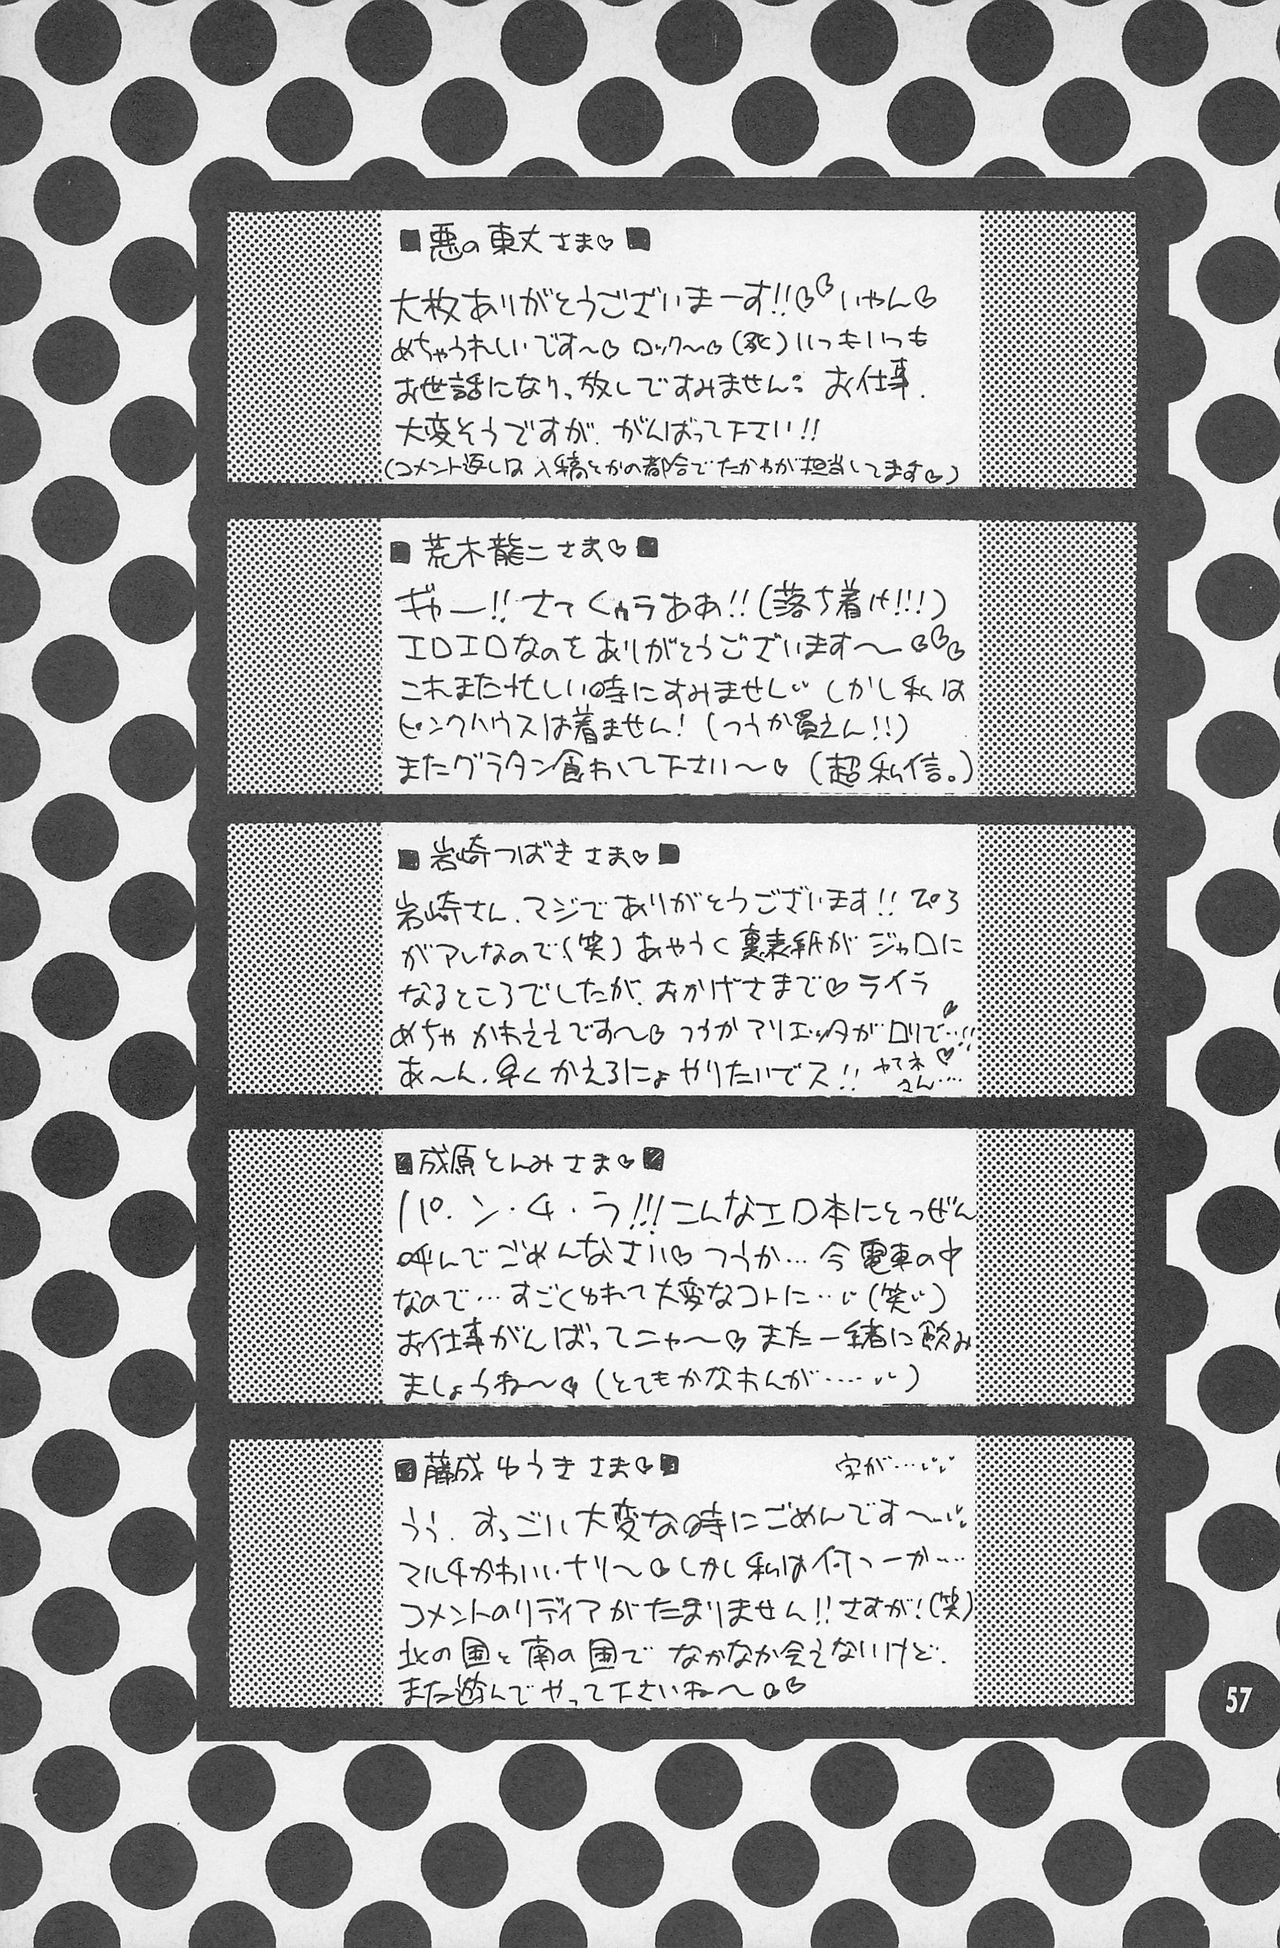 ■悪の東丈さま♡■
大枚ありがとうございまーす!!♡♡いやん♡
めちゃうれしいです〜♡ロック〜♡(死)いつもいつも
お世話になりっ放しですみません。お仕事
大変そうですが、がんばって下さい!!
(コメント返しは入稿とかの都合でたかやが担当してます♡)
■荒木龍二さま♡■
ギャー!!さてくぅうああ!!(落ち着け!!!)
エロエロなのをありがとうございます〜♡♡♡
これまた忙しい時にすみません しかし私は
ピンクハウスは着ません!(つうか買えん!!)
またグラタン食わして下さい〜♡(超私信。)
■岩崎つばきさま♡■
岩崎さん、マジでありがとうございます!!ぴろ
がアレなので(笑)あやうく裏表紙がジャロに
なるところでしたが、おかげさまで♡ライラ
めちゃかわええです〜♡つうかマリエッタがロリで…!!
あ〜ん、早くかえるにょやりたいでス!!
■成原とんみさま♡■
パ・ン・チ・ラ!!!こんなエロ本にとつぜん
呼んでごめんなさい♡つうか…今電車の中
なので…すごくゆれて大変なコトに…(笑)
お仕事がんばってニャ〜♡また一緒に飲み
ましょうね〜♡(とてもかなわんが……)
■藤成ゆうきさま♡■ 字が…
うぅ、すっごい大変な時にごめんです〜
マルチかわいいナリ〜♡しかし私は何つーか…
コメントのリディアがたまりません!!さすが!(笑)
北の国と南の国でなかなか会えないけど、
また遊んでやって下さいね〜♡♡
57